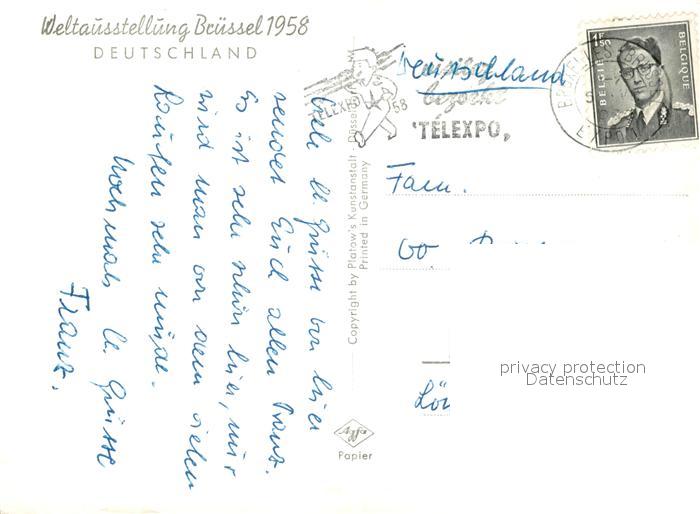 Weltausstellung Brüssel 1958
DEUTSCHLAND
Viele lb. Grüsse von hier
sendet Euch allen Franz.
Es ist sehr schön hier, nur
wird man von dem vielen
Laufen sehr müde.
Nochmals lb. Grüsse
Franz.
Copyright by Platow's Kunstanstalt - Düsseldorf
Printed in Germany
Agfa
Papier
TELEXPO 58
bezoekt
"TELEXPO"
BELGIË BELGIQUE
Deutschland
Fam.
privacy protection
Datenschutz